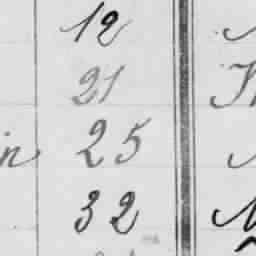 12
21
in 25
32